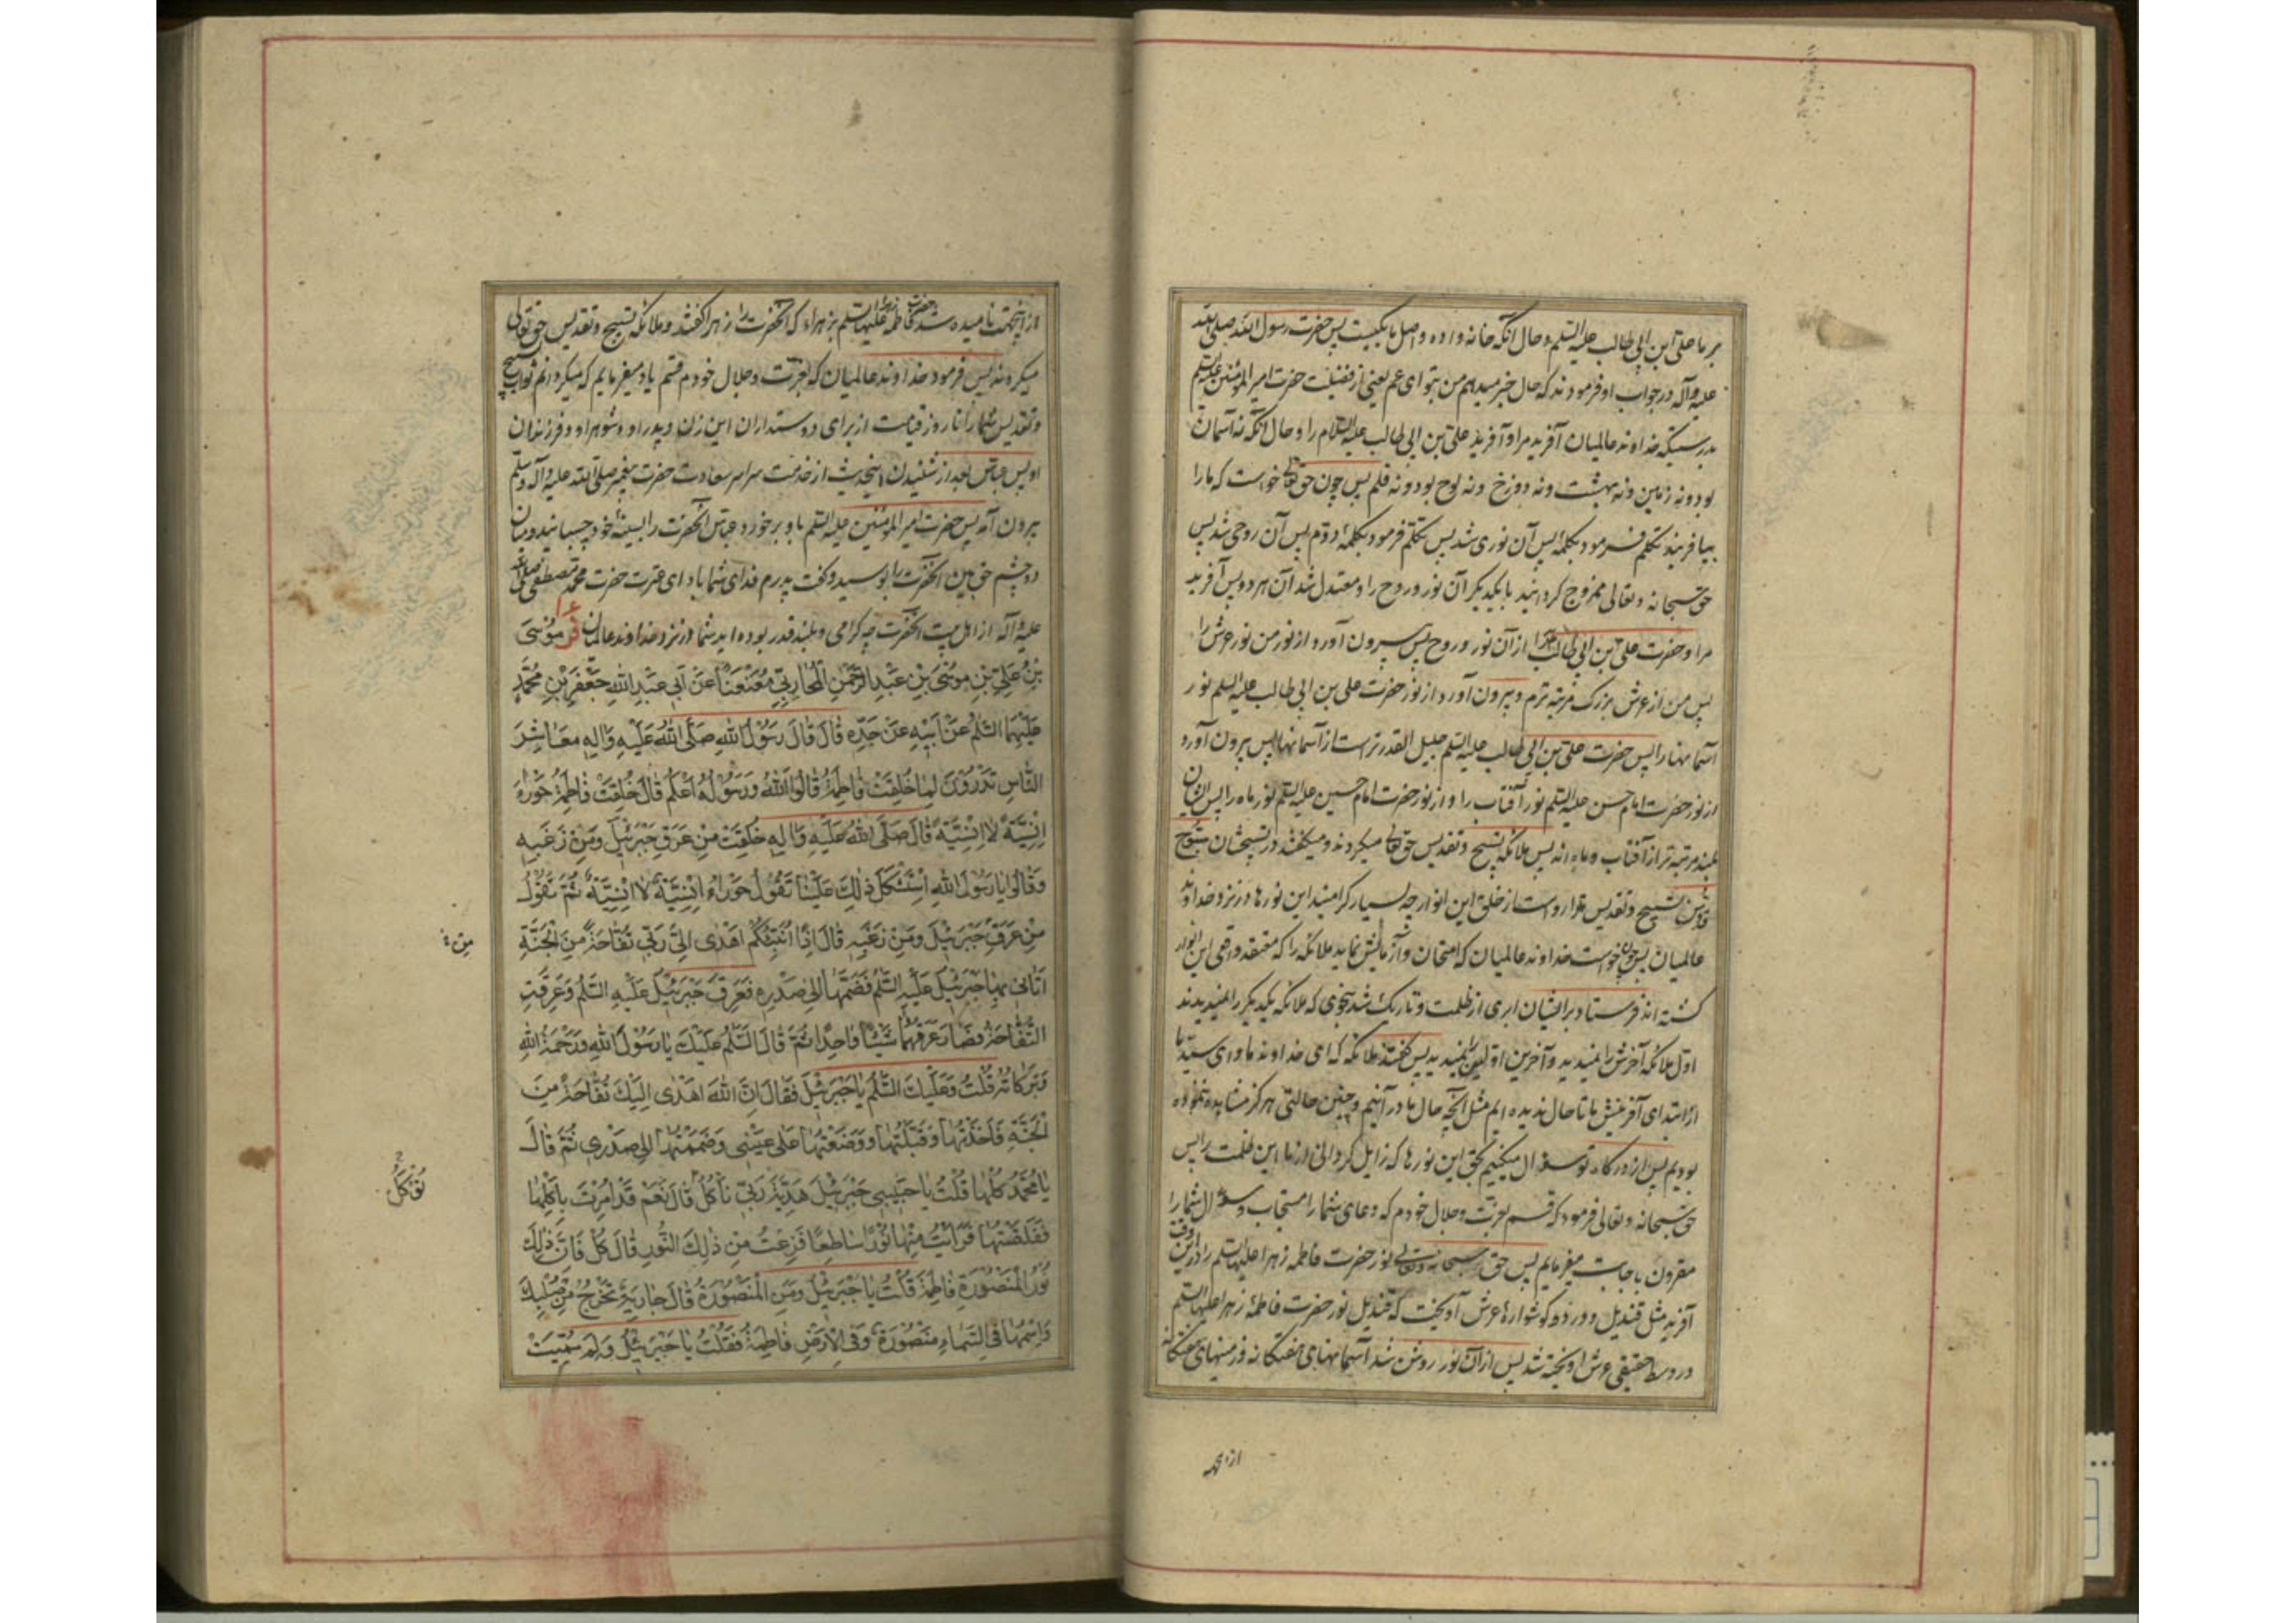 بر ما علی ابن ابی طالب علیه السلم و حال آنکه خانه واده و اصل ما یکیست پس حضرت رسول الله صلی الله
علیه و آله در جواب او فرمودند که حال خبر میدهم من بتو ای عم یعنی از فضیلت حضرت امیر المؤمنین علیه السلم
بدرستیکه خداوند عالمیان آفرید مرا و آفرید علی بن ابی طالب علیه السلام را و حال آنکه نه آسمان
بود و نه زمین و نه بهشت و نه دوزخ و نه لوح بود و نه قلم پس چون حق تعالی خواست که ما را
بیافریند تکلم فرمود بکلمهٔ پس آن نوری شد پس تکلم فرمود بکلمهٔ دوم پس آن روحی شد پس
حق سبحانه و تعالی ممزوج گردانید با یکدیگر آن نور و روح را و معتدل شد آن هر دو پس آفرید
مرا و حضرت علی بن ابی طالب را از آن نور و روح پس بیرون آورد از نور من نور عرش را
پس من از عرش بزرک مرتبه ترم و بیرون آورد از نور حضرت علی بن ابی طالب علیه السلم نور
آسمانها را پس حضرت علی بن ابی طالب علیه السلم جلیل القدرتر است از آسمانها پس بیرون آورد
از نور حضرت امام حسن علیه السلم نور آفتاب را و از نور حضرت امام حسین علیه السلم نور ماه را پس ایشان
بلند مرتبه تر از آفتاب و ماه اند پس ملائکه تسبیح و تقدیس حق تعالی میکردند و میگفتند در تسبیحشان سبوح
قدوس تسبیح و تقدیس تو را رواست از خلق این انوار چه بسیار گرامیند این نورها در نزد خداوند
عالمیان پس چون خواست خداوند عالمیان که امتحان و آزمایش نماید ملائکه را که معتقد واقعی این انوار
گشته اند فرستاد بر ایشان ابری از ظلمت و تاریک شد بنحوی که ملائکه یکدیگر را نمیدیدند
اول ملائکه آخرش را نمیدید و آخرین اولین را نمیدید پس گفتند ملائکه که ای خداوند ما و ای سید ما
از ابتدای آفرینش ما تا حال ندیده ایم مثل آنچه حال ما در آنیم و چنین حالتی هرگز مشاهده ننموده
بودیم پس از درگاه تو سؤال میکنیم بحق این نورها که زایل گردانی از ما این ظلمت را پس
حق سبحانه و تعالی فرمود که قسم بعزت و جلال خودم که دعای شما را مستجاب و سؤال شما را
مقرون باجابت میفرمایم پس حق سبحانه و تعالی نور حضرت فاطمه زهرا علیها السلم را در این وقت
آفرید مثل قندیل و در دو گوشوارهٔ عرش آویخت که قندیل نور حضرت فاطمهٔ زهرا علیها السلم
در وسط حقیقی عرش آویخته شد پس از آن نور روشن شد آسمانهای هفتگانه و زمینهای هفتگانه
از اینجهة
از اینجهت نامیده شد حضرت فاطمه زهرا علیها السلم بزهراء که آنحضرت را زهرا گفتند و ملائکه تسبیح و تقدیس حق تعالی
میکردند پس فرمود خداوند عالمیان که بعزت و جلال خودم قسم یاد میفرمایم که میگردانم ثواب تسبیح
و تقدیس شما را تا روز قیامت از برای دوستداران این زن و پدر او و شوهر او و فرزندان
او پس عباس بعد از شنیدن اینحدیث از خدمت سراسر سعادت حضرت پیغمبر صلی الله علیه و آله و سلم
بیرون آمد پس حضرت امیر المؤمنین علیه السلم باو برخورد عباس آنحضرت را بسینهٔ خود چسبانید و میان
دو چشم حق بین آنحضرت را بوسید و گفت پدرم فدای شما باد ای عترت حضرت محمد مصطفی صلی الله
علیه و آله از اهل بیت آنحضرت چه گرامی و بلند قدر بوده اید شما در نزد خداوند عالمیان فر مُوسَی
بْنُ عَلِیِّ بْنِ مُوسَی بْنِ عَبْدِ الرَّحْمٰنِ الْمُحَارِبِیِّ مُعَنْعَنًا عَنْ أَبِی عَبْدِ اللهِ جَعْفَرِ بْنِ مُحَمَّدٍ
عَلَیْهِمَا السَّلٰمُ عَنْ أَبِیهِ عَنْ جَدِّهِ قَالَ قَالَ رَسُولُ اللهِ صَلَّی اللهُ عَلَیْهِ وَآلِهِ مَعَاشِرَ
النَّاسِ تَدْرُونَ لِمَا خُلِقَتْ فَاطِمَةُ قَالُوا اللهُ وَرَسُولُهُ أَعْلَمُ قَالَ خُلِقَتْ فَاطِمَةُ حَوْرَاءَ
إِنْسِیَّةً لَا إِنْسِیَّةً قَالَ صَلَّی اللهُ عَلَیْهِ وَآلِهِ خُلِقَتْ مِنْ عَرَقِ جَبْرَئِیلَ وَمِنْ زَغَبِهِ
وَقَالُوا یَا رَسُولَ اللهِ اسْتَشْکَلَ ذٰلِکَ عَلَیْنَا تَقُولُ حَوْرَاءُ إِنْسِیَّةٌ لَا إِنْسِیَّةٌ ثُمَّ تَقُولُ
مِنْ عَرَقِ جَبْرَئِیلَ وَمِنْ زَغَبِهِ قَالَ إِذًا أُنَبِّئُکُمْ أَهْدَی إِلَیَّ رَبِّی تُفَّاحَةً مِنَ الْجَنَّةِ
أَتَانِی بِهَا جَبْرَئِیلُ عَلَیْهِ السَّلٰمُ فَضَمَّهَا إِلَی صَدْرِهِ فَعَرِقَ جَبْرَئِیلُ عَلَیْهِ السَّلٰمُ وَعَرِقَتِ
التُّفَّاحَةُ فَصَارَ عَرَقُهُمَا شَیْئًا وَاحِدًا ثُمَّ قَالَ السَّلٰمُ عَلَیْکَ یَا رَسُولَ اللهِ وَرَحْمَةُ اللهِ
وَبَرَکَاتُهُ قُلْتُ وَعَلَیْکَ السَّلٰمُ یَا جَبْرَئِیلُ فَقَالَ إِنَّ اللهَ أَهْدَی إِلَیْکَ تُفَّاحَةً مِنَ
الْجَنَّةِ فَأَخَذْتُهَا وَقَبَّلْتُهَا وَوَضَعْتُهَا عَلَی عَیْنِی وَضَمَمْتُهَا إِلَی صَدْرِی ثُمَّ قَالَ
یَا مُحَمَّدُ کُلْهَا قُلْتُ یَا حَبِیبِی جَبْرَئِیلُ هَدِیَّةُ رَبِّی تَأْکُلُ قَالَ نَعَمْ قَدْ أُمِرْتَ بِأَکْلِهَا
فَفَلَقْتُهَا فَرَأَیْتُ مِنْهَا نُورًا سَاطِعًا فَفَزِعْتُ مِنْ ذٰلِکَ النُّورِ قَالَ کُلْ فَإِنَّ ذٰلِکَ
نُورُ الْمَنْصُورَةِ فَاطِمَةَ قُلْتُ یَا جَبْرَئِیلُ وَمَنِ الْمَنْصُورَةُ قَالَ جَارِیَةٌ تَخْرُجُ مِنْ صُلْبِکَ
وَاسْمُهَا فِی السَّمَاءِ مَنْصُورَةٌ وَفِی الْأَرْضِ فَاطِمَةُ فَقُلْتُ یَا جَبْرَئِیلُ وَلِمَ سُمِّیَتْ
من
تُؤْکَلُ